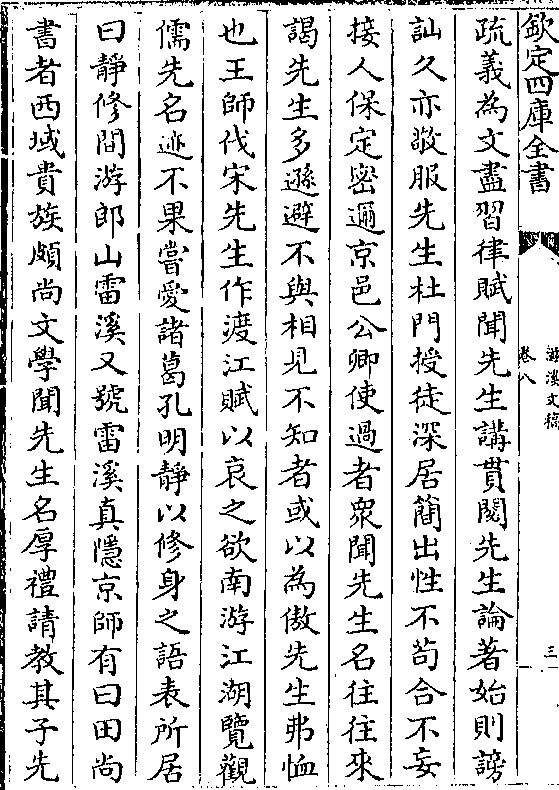 欽定四庫全書
滋溪文稿
卷八
三
疏義為文盡習律賦聞先生講貫閱先生論著始則謗
訕久亦敬服先生杜門授徒深居簡出性不苟合不妄
接人保定密邇京邑公卿使過者衆聞先生名往往來
謁先生多遜避不與相見不知者或以為傲先生弗恤
也王師伐宋先生作渡江賦以哀之欲南游江湖覽觀
儒先名迹不果嘗愛諸葛孔明靜以修身之語表所居
曰靜修間游郎山雷溪又號雷溪真隱京師有曰田尚
書者西域貴族頗尚文學聞先生名厚禮請教其子先